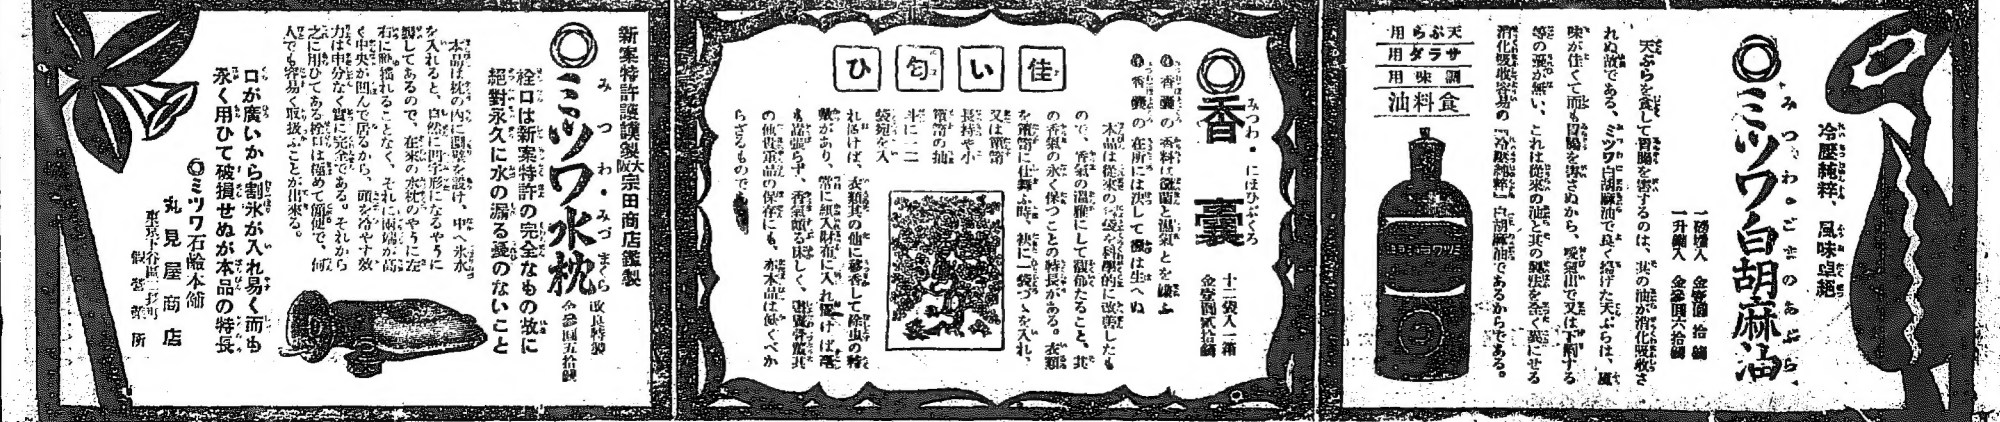 冷壓純粹、風味卓絕
◎ミツワ白胡麻油
みつわしろごまのあぶら
一升罐入 金參圓六拾錢
天ぷらを食して胃腸を害するのは、其の油が消化吸收さ
れぬ故である、ミツワ白胡麻油で良く揚げた天ぷらは、風
味が佳くて而も胃腸を害さぬから、噯氣出で又は下痢する
等の憂が無い、これは從來の油と其の製法を全く異にせる
消化吸收容易の『冷壓純粹』白胡麻油であるからである。
天ぷら用
サラダ用
調味用
食料油
ミツワ
◎香囊
みつわ・にほひぶくろ
十二袋入一箱 金壹圓貳拾錢
◎香囊の香料は黴菌と濕氣とを嫌ふ
◎香囊の在所には決して黴は生へぬ
佳い匂ひ
本品は從來の匂袋を科學的に改善したも
ので、香氣の溫雅にして馥郁たること、其
の香氣の永く保つことの特長がある。衣類
を簞笥に仕舞ふ時、袂に一袋づゝを入れ、
又は簞笥
長持や小
簞笥の抽
斗に一二
袋宛を入
れ置けば、衣類其の他に移香して除虫の特
效があり、常に紙入財布に入れ置けば毫
も品張らず、香氣頗る床しく、
の他貴重品の保存にも、亦本品は無くべか
らざるもので
新案特許護謨製 大阪 宗田商店鑑製
◎ミツワ水枕
みつわ・みづまくら
改良特製 金參圓五拾錢
栓口は新案特許の完全なもの故に
絕對永久に水の漏る憂のないこと
本品は枕の內に隔壁を設け、中へ氷水
を入れると、自然に凹字形になるやうに
製してあるので、在來の水枕のやうに左
右に動搖れることなく、それに兩端が高
く中央が凹んで居るから、頭を冷やす效
力は申分なく實に完全である。それから
之に用ひてある栓口は極めて簡便で、何
人でも容易く取扱ふことが出來る。
口が廣いから割氷が入れ易く而も
永く用ひて破損せぬが本品の特長
◎ミツワ石鹼本舖
丸見屋商店
東京下谷區二長町
假營業所